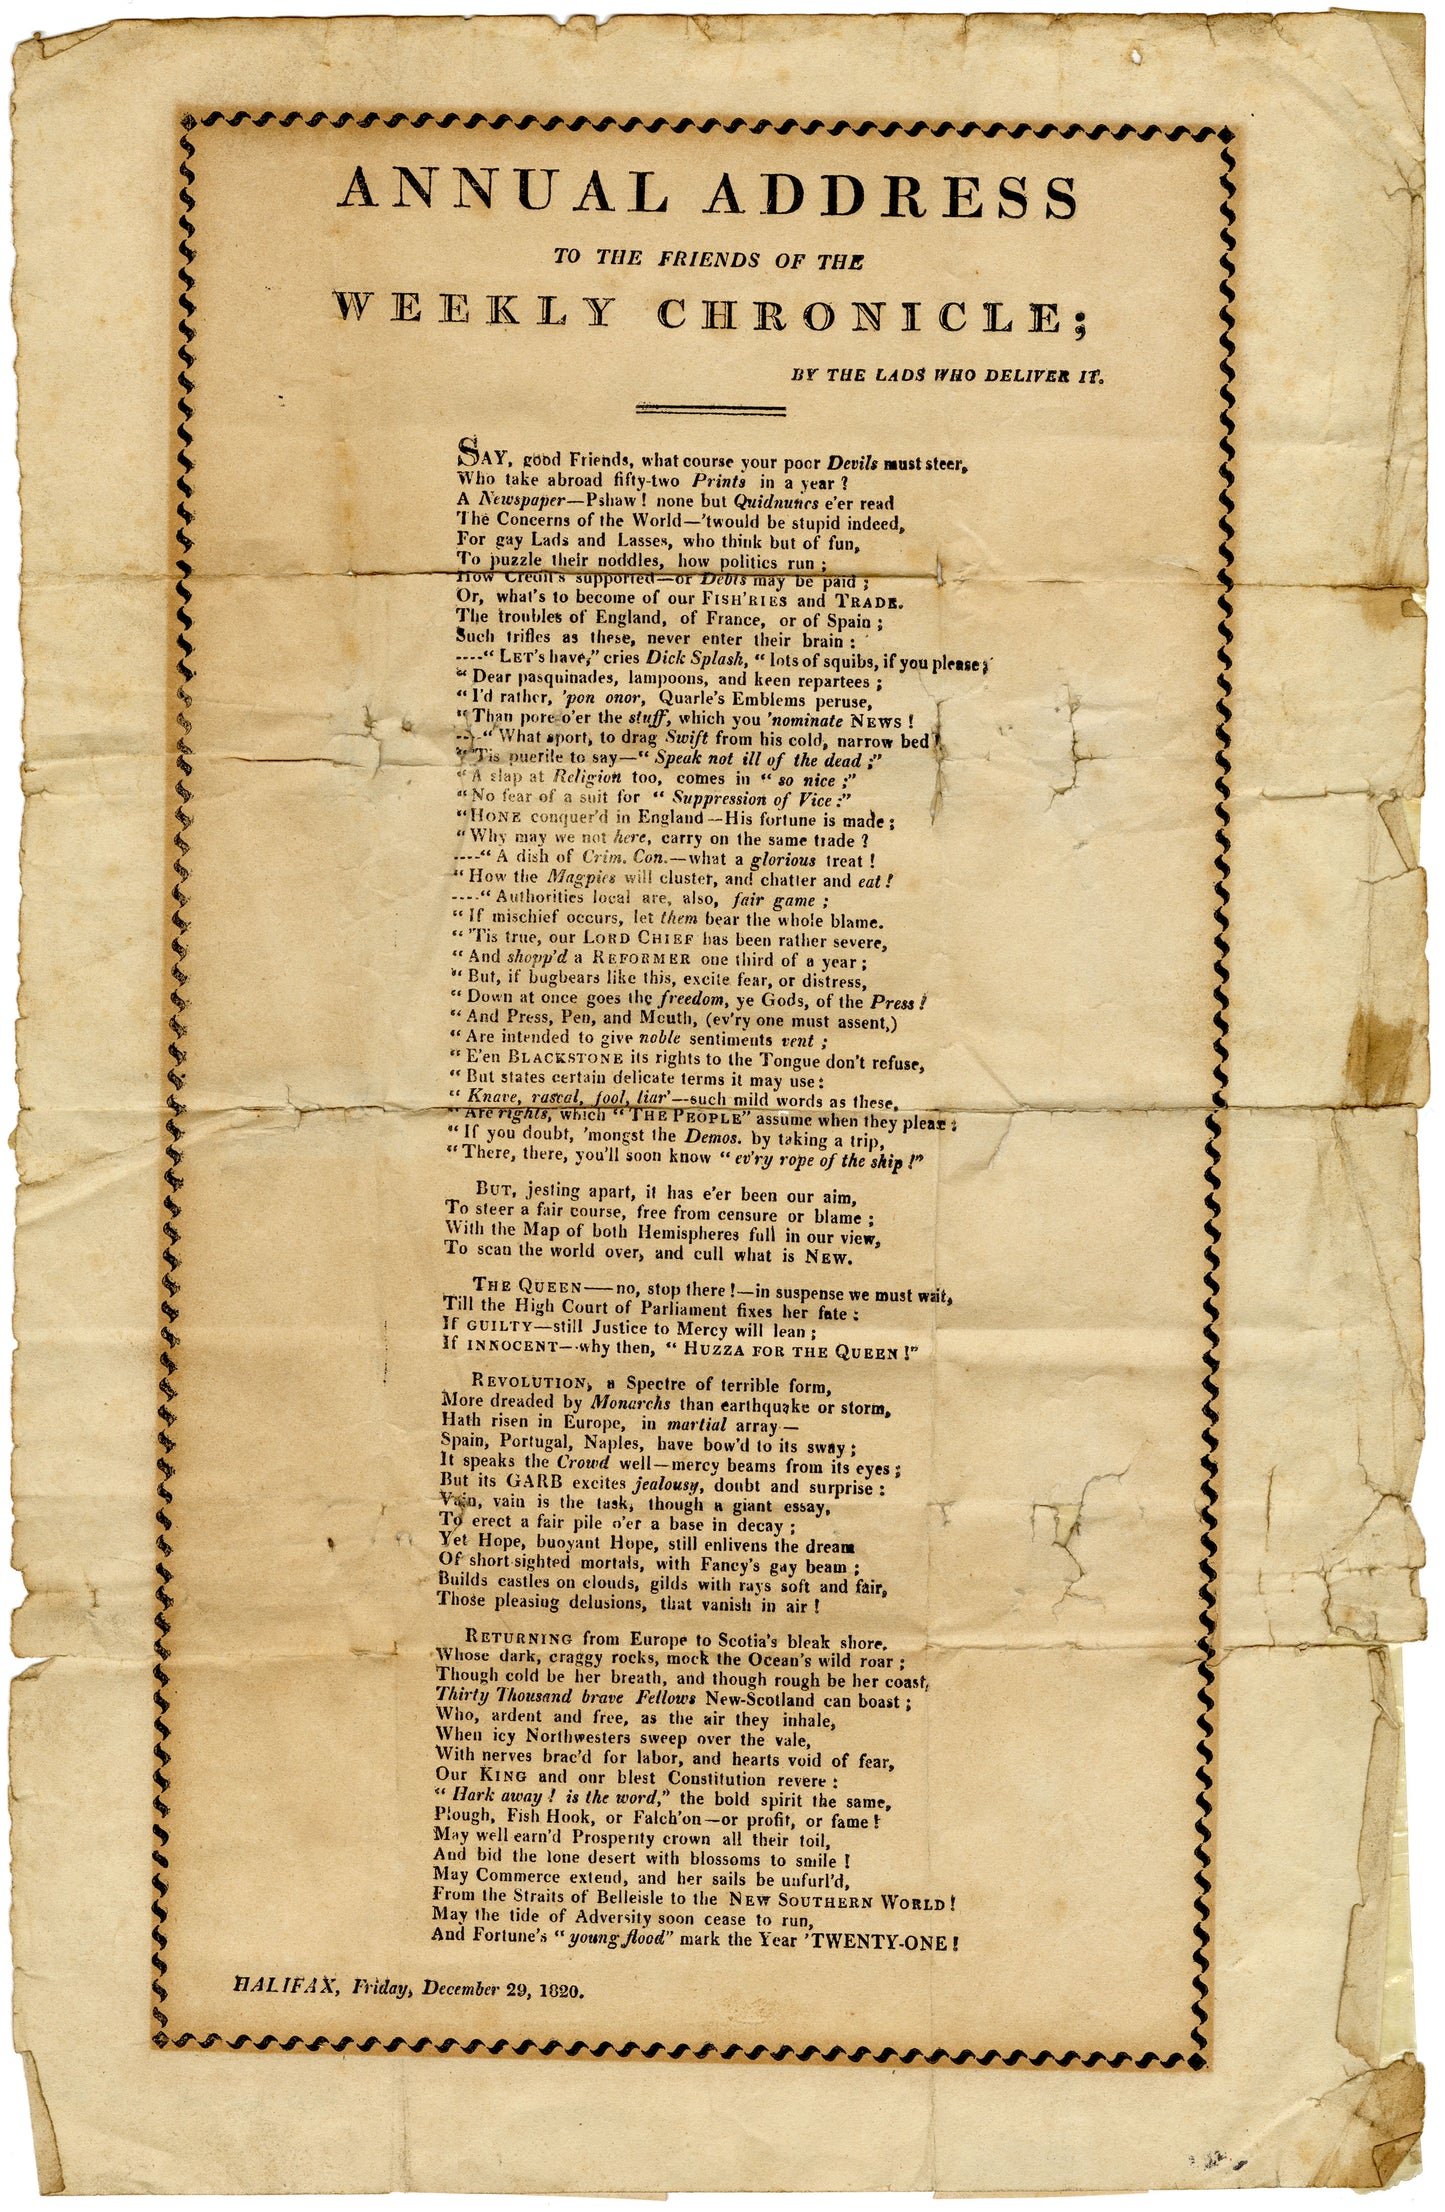 ANNUAL ADDRESS
TO THE FRIENDS OF THE
WEEKLY CHRONICLE;
BY THE LADS WHO DELIVER IT.
SAY, good Friends, what course your poor Devils must steer,
Who take abroad fifty-two Prints in a year ?
A Newspaper—Pshaw ! none but Quidnuncs e'er read
The Concerns of the World—'twould be stupid indeed,
For gay Lads and Lasses, who think but of fun,
To puzzle their noddles, how politics run ;
How Credit's supported—or Debts may be paid ;
Or, what's to become of our FISH'RIES and TRADE.
The troubles of England, of France, or of Spain ;
Such trifles as these, never enter their brain :
----“ LET's have,” cries Dick Splash, “ lots of squibs, if you please ;
“ Dear pasquinades, lampoons, and keen repartees ;
“ I'd rather, 'pon onor, Quarle's Emblems peruse,
“ Than pore o'er the stuff, which you 'nominate NEWS !
----“ What sport, to drag Swift from his cold, narrow bed !
“ 'Tis puerile to say—“ Speak not ill of the dead ;”
“ A slap at Religion too, comes in “ so nice ;”
“ No fear of a suit for “ Suppression of Vice :”
“ HONE conquer'd in England—His fortune is made ;
“ Why may we not here, carry on the same trade ?
----“ A dish of Crim. Con.—what a glorious treat !
“ How the Magpies will cluster, and chatter and eat !
----“ Authorities local are, also, fair game ;
“ If mischief occurs, let them bear the whole blame.
“ 'Tis true, our LORD CHIEF has been rather severe,
“ And shopp'd a REFORMER one third of a year ;
“ But, if bugbears like this, excite fear, or distress,
“ Down at once goes the freedom, ye Gods, of the Press !
“ And Press, Pen, and Mouth, (ev'ry one must assent,)
“ Are intended to give noble sentiments vent ;
“ E'en BLACKSTONE its rights to the Tongue don't refuse,
“ But states certain delicate terms it may use :
“ Knave, rascal, fool, liar'—such mild words as these,
“ Are rights, which “ THE PEOPLE” assume when they please :
“ If you doubt, 'mongst the Demos. by taking a trip,
“ There, there, you'll soon know “ ev'ry rope of the ship !”
BUT, jesting apart, it has e'er been our aim,
To steer a fair course, free from censure or blame ;
With the Map of both Hemispheres full in our view,
To scan the world over, and cull what is NEW.
THE QUEEN——no, stop there !—in suspense we must wait,
Till the High Court of Parliament fixes her fate :
If GUILTY—still Justice to Mercy will lean ;
If INNOCENT—why then, “ HUZZA FOR THE QUEEN !”
REVOLUTION, a Spectre of terrible form,
More dreaded by Monarchs than earthquake or storm,
Hath risen in Europe, in martial array—
Spain, Portugal, Naples, have bow'd to its sway ;
It speaks the Crowd well—mercy beams from its eyes ;
But its GARB excites jealousy, doubt and surprise :
Vain, vain is the task, though a giant essay,
To erect a fair pile o'er a base in decay ;
Yet Hope, buoyant Hope, still enlivens the dream
Of short-sighted mortals, with Fancy's gay beam ;
Builds castles on clouds, gilds with rays soft and fair,
Those pleasing delusions, that vanish in air !
RETURNING from Europe to Scotia's bleak shore,
Whose dark, craggy rocks, mock the Ocean's wild roar ;
Though cold be her breath, and though rough be her coast,
Thirty Thousand brave Fellows New-Scotland can boast ;
Who, ardent and free, as the air they inhale,
When icy Northwesters sweep over the vale,
With nerves brac'd for labor, and hearts void of fear,
Our KING and our blest Constitution revere :
“ Hark away ! is the word,” the bold spirit the same,
Plough, Fish Hook, or Falch'on—or profit, or fame !
May well earn'd Prosperity crown all their toil,
And bid the lone desert with blossoms to smile !
May Commerce extend, and her sails be unfurl'd,
From the Straits of Belleisle to the NEW SOUTHERN WORLD !
May the tide of Adversity soon cease to run,
And Fortune's “ young flood” mark the Year 'TWENTY-ONE !
HALIFAX, Friday, December 29, 1820.